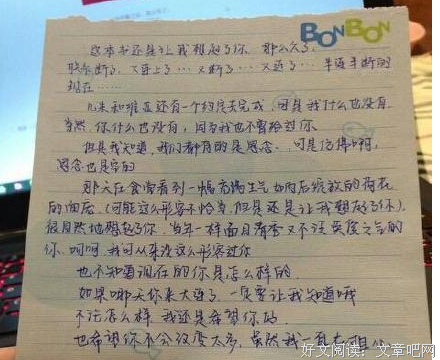 BONBON
这本书还是让我想起了你. 那么久了,
联系断了. 又连上了…又断了…又连了…半连半断的
现在……
儿来和难且还有一个约定未完成, 可是我什么也没有
当然. 你什么也没有, 因为我也不曾给过你
但是我知道, 我们都有的是思念. 可是
思念也是空的
那天在食堂看到一幅充满生气 如雨后绽放的荷花
的油画. (可能这么形容不恰当, 但是还是让我想起了你).
很自然地想起了你, 当年一样面目清秀又不泛英度之气的
你. 呵呵. 我可从来没这么形容过你
也不知道现在的你是怎么样的.
如果哪天你来大连了. 一定要让我知道哦
不论怎么样. 我还是希望你好
也希望你不会改变太多, 虽然我一直在
好文阅读:文章吧网